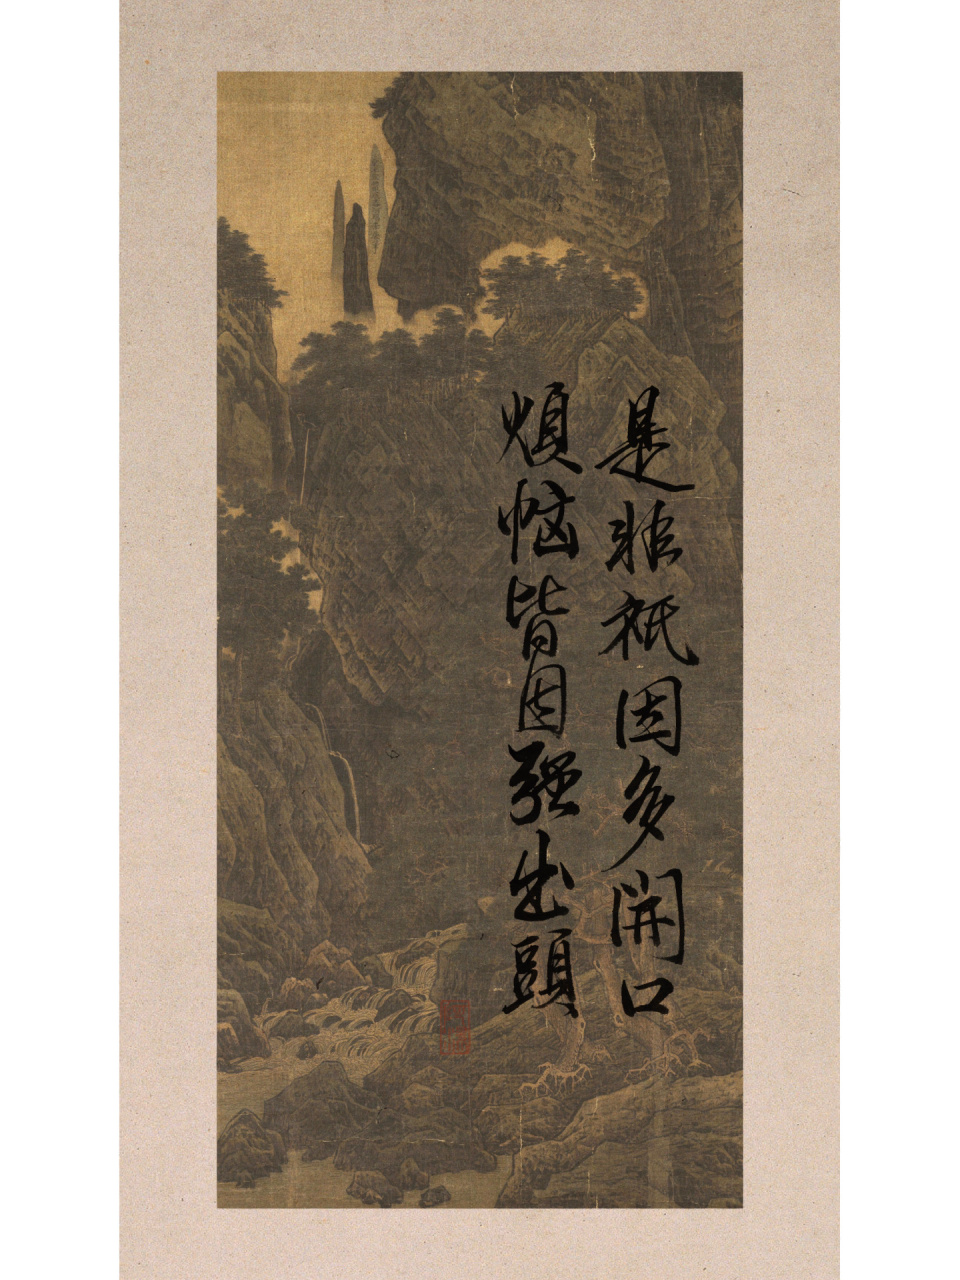 是非祇因多開口
煩惱皆因强出頭